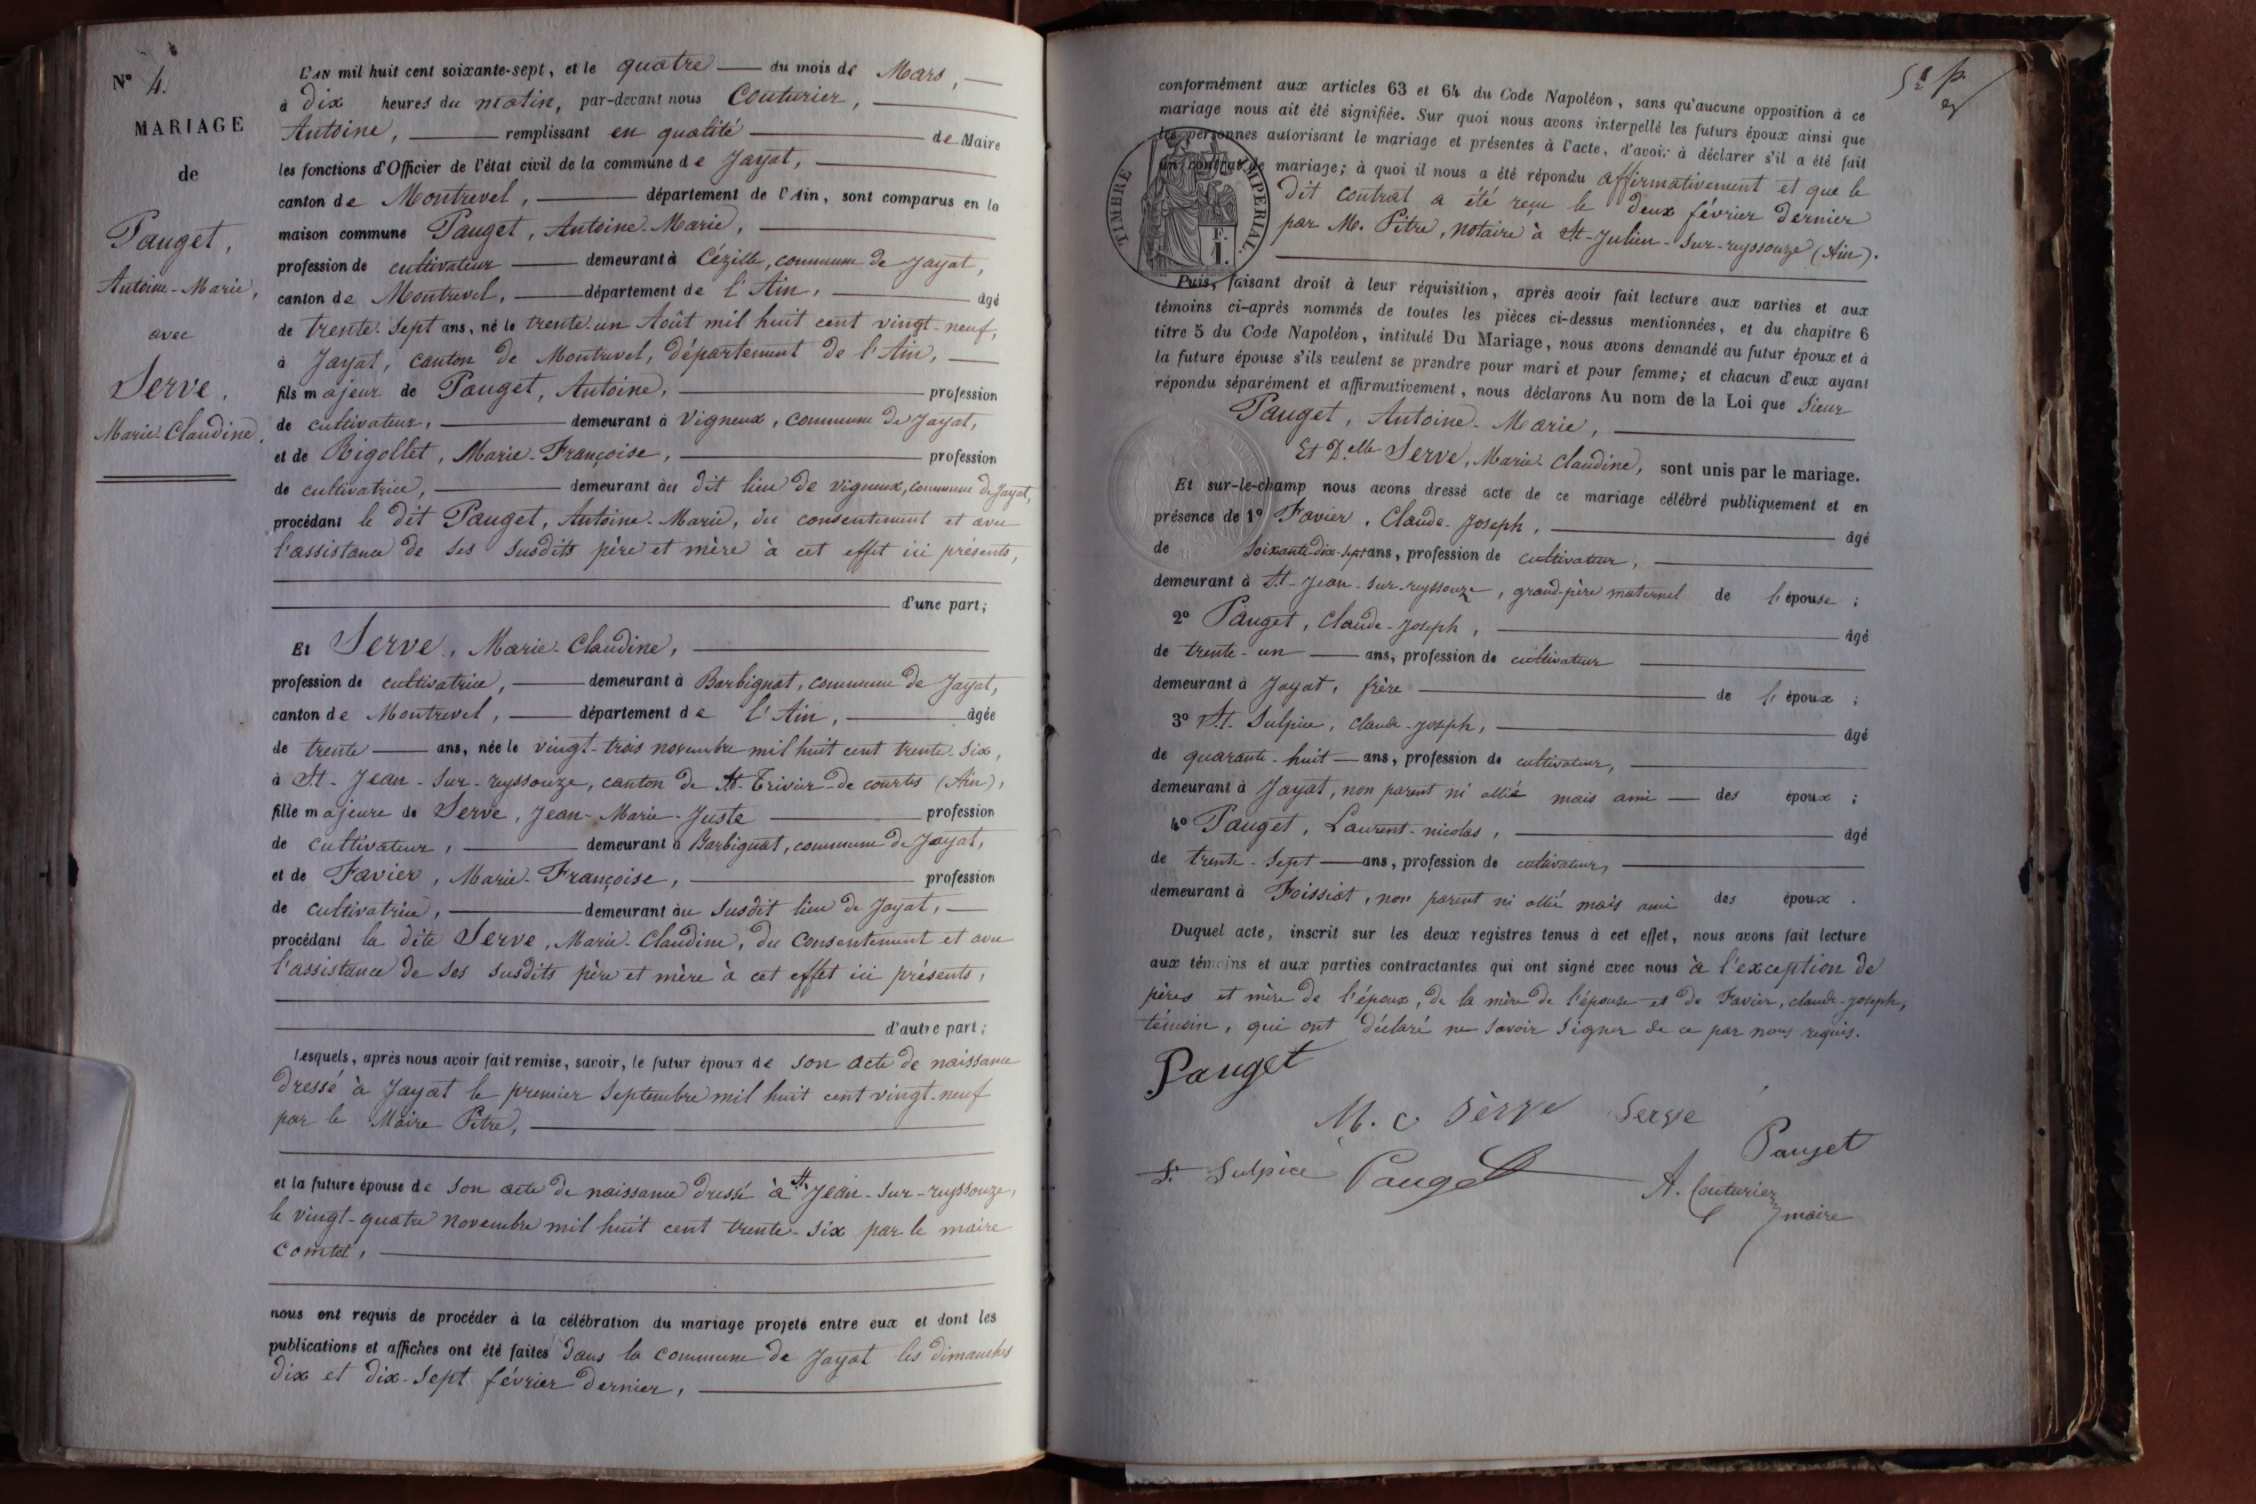 N° 4.
MARIAGE
de
Pauget,
Antoine-Marie,
avec
Serve,
Marie-Claudine,
L'AN mil huit cent soixante-sept, et le quatre du mois de Mars,
à dix heures du matin, par-devant nous Couturier,
Antoine, remplissant en qualité de Maire
les fonctions d'Officier de l'état civil de la commune de Jayat,
canton de Montrevel, département de l'Ain, sont comparus en la
maison commune Pauget, Antoine-Marie,
profession de cultivateur demeurant à Cézille, commune de Jayat,
canton de Montrevel, département de l'Ain, âgé
de trente-sept ans, né le trente-un Août mil huit cent vingt-neuf,
à Jayat, canton de Montrevel, département de l'Ain,
fils majeur de Pauget, Antoine, profession
de cultivateur, demeurant à Vigneux, commune de Jayat,
et de Rigollet, Marie-Françoise, profession
de cultivatrice, demeurant au dit lieu de vigneux, commune de Jayat,
procédant le dit Pauget, Antoine-Marie, du consentement et avec
l'assistance de ses susdits père et mère à cet effet ici présents,
d'une part;
Et Serve, Marie-Claudine,
profession de cultivatrice, demeurant à Barbignat, commune de Jayat,
canton de Montrevel, département de l'Ain, âgée
de trente ans, née le vingt-trois novembre mil huit cent trente-six,
à St-Jean-sur-reyssouze, canton de St-Trivier-de courtes (Ain),
fille majeure de Serve, Jean-Marie-Juste profession
de cultivateur, demeurant à Barbignat, commune de Jayat,
et de Favier, Marie-Françoise, profession
de cultivatrice, demeurant au susdit lieu de Jayat,
procédant la dite Serve, Marie-Claudine, du consentement et avec
l'assistance de ses susdits père et mère à cet effet ici présents,
d'autre part;
Lesquels, après nous avoir fait remise, savoir, le futur époux de son acte de naissance
dressé à Jayat le premier Septembre mil huit cent vingt-neuf
par le Maire Pitre,
et la future épouse de son acte de naissance dressé à St Jean-sur-reyssouze,
le vingt-quatre novembre mil huit cent trente-six par le maire
comtet,
nous ont requis de procéder à la célébration du mariage projeté entre eux et dont les
publications et affiches ont été faites dans la commune de Jayat les dimanches
dix et dix-sept février dernier,
conformément aux articles 63 et 64 du Code Napoléon, sans qu'aucune opposition à ce
mariage nous ait été signifiée. Sur quoi nous avons interpellé les futurs époux ainsi que
les personnes autorisant le mariage et présentes à l'acte, d'avoir à déclarer s'il a été fait
un contrat de mariage; à quoi il nous a été répondu affirmativement et que le
dit contrat a été reçu le deux février dernier
par M. Pitre, notaire à St-Julien-sur-reyssouze (Ain).
TIMBRE IMPERIAL.
1 F.
Puis, faisant droit à leur réquisition, après avoir fait lecture aux parties et aux
témoins ci-après nommés de toutes les pièces ci-dessus mentionnées, et du chapitre 6
titre 5 du Code Napoléon, intitulé Du Mariage, nous avons demandé au futur époux et à
la future épouse s'ils veulent se prendre pour mari et pour femme; et chacun d'eux ayant
répondu séparément et affirmativement, nous déclarons Au nom de la Loi que Sieur
Pauget, Antoine-Marie,
Et Delle Serve, Marie-Claudine, sont unis par le mariage.
Et sur-le-champ nous avons dressé acte de ce mariage célébré publiquement et en
présence de 1° Favier, Claude-Joseph, âgé
de soixante-dix-sept ans, profession de cultivateur,
demeurant à St-Jean-sur-reyssouze, grand-père maternel de l'épouse;
2° Pauget, Claude-Joseph, âgé
de trente-un ans, profession de cultivateur
demeurant à Jayat, frère de l'époux;
3° St-Sulpice, Claude-Joseph, âgé
de quarante-huit ans, profession de cultivateur,
demeurant à Jayat, non parent ni allié mais ami des époux;
4° Pauget, Laurent-nicolas, âgé
de trente-sept ans, profession de cultivateur,
demeurant à Foissiat, non parent ni allié mais ami des époux.
Duquel acte, inscrit sur les deux registres tenus à cet effet, nous avons fait lecture
aux témoins et aux parties contractantes qui ont signé avec nous à l'exception de
pères et mère de l'époux, de la mère de l'épouse et de Favier, claude-joseph,
témoin, qui ont déclaré ne savoir signer de ce par nous requis.
Pauget
M. C Sèrve Serve
Pauget
St Sulpice Pauget
A. Couturier
maire